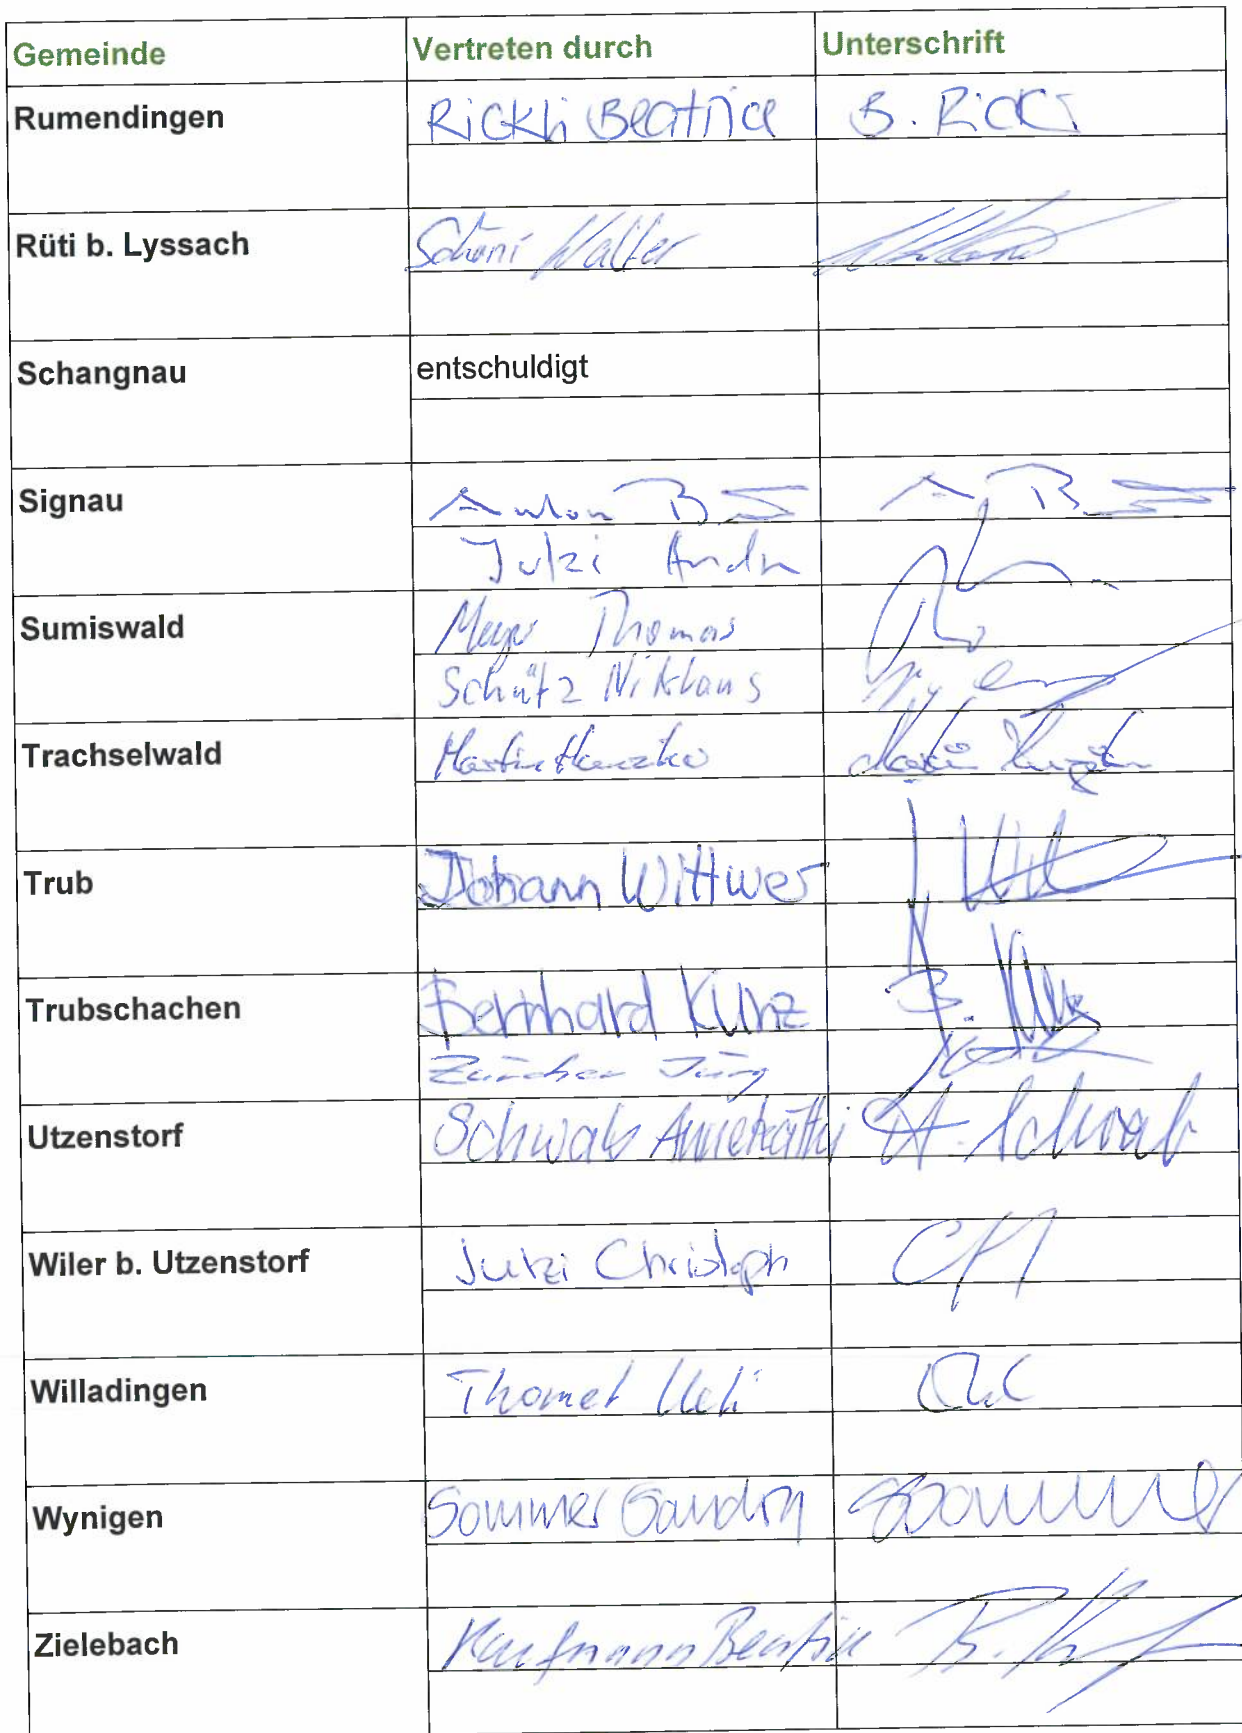 Gemeinde Vertreten durch Unterschrift
Rumendingen Rickli Beatrice B. Rickli
Rüti b. Lyssach Schöni Walter
Schangnau entschuldigt
Signau Anton B
Jutzi Andr
Sumiswald Meyer Thomas
Schütz Niklaus
Trachselwald Martin
Trub Johann Wittwer
Trubschachen Bernhard Kunz B. Kunz
Zürcher Jürg
Utzenstorf Schwab Annekäthi A. Schwab
Wiler b. Utzenstorf Jutzi Christoph
Willadingen Thomet Ueli
Wynigen Sommer Sandra SSommer
Zielebach Kaufmann Beatrice